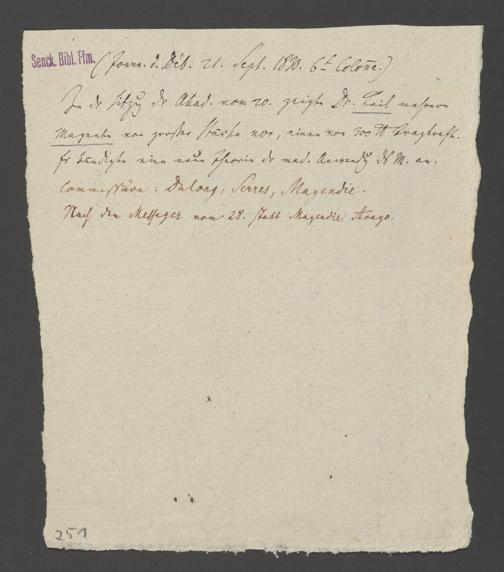 Senck. Bibl. Ffm.
(Journ. d. Déb. 21. Sept. 1830. 6t Colone.)
In der Sitzg der Akad. vom 20. zeigte Dr. Keil mehrere
Magnete von großer Stärke vor, einen von 300 ℔ Tragkraft.
Er kündigte eine neue Theorie der med. Anwendg des M. an.
Commissäre: Dulong, Serres, Magendie.
Nach dem Messager vom 28. statt Magendie Arago.
251